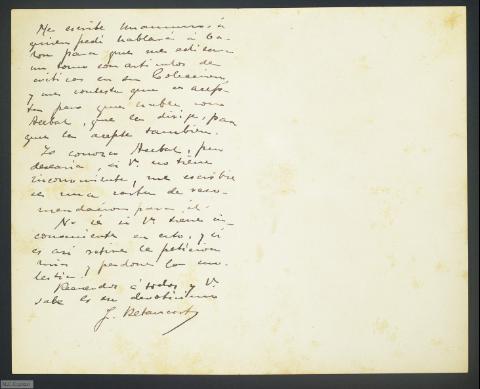 Me escribe Unamuno, á
quien pedí hablara á Ca-
ron para que me editara
un tomo con artículos de
críticas en su Colección,
y me contesta que es acep-
ta pero que hable con
Acebal, que la dirije, para
que la acepte también.
Yo conozco Acebal, pero
desearía, si V. no tiene
inconveniente, me escribie-
se una carta de reco-
mendación para él.
No sé si V. tiene in-
conveniente en esto, y si
es así retire la petición
mía y perdone la mo-
lestia.
Recuerdos á todos y V.
sabe es su devotísimo
J. Betancort